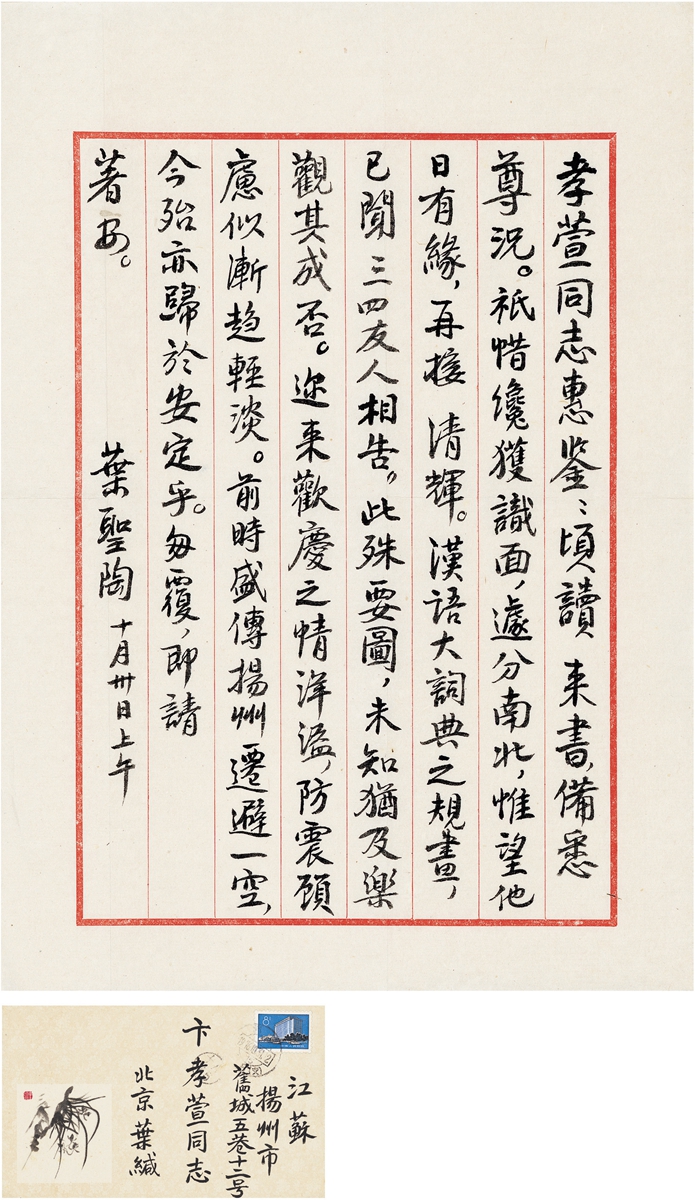 孝萱同志惠鉴：頃讀 来書，備悉
尊況。祇惜纔獲識面，遽分南北，惟望他
日有緣，再接 清輝。漢語大詞典之規畫，
已聞三四友人相告，此殊要圖，未知猶及樂
觀其成否。迩来歡慶之情洋溢，防震顧
慮似漸趋輕淡。前時盛傳揚州遷避一空，
今殆亦歸於安定乎。匆覆，即請
著安。
葉聖陶 十月卅日上午
8分
江蘇
揚州市
舊城五巷十二号
卞孝萱同志
北京葉緘